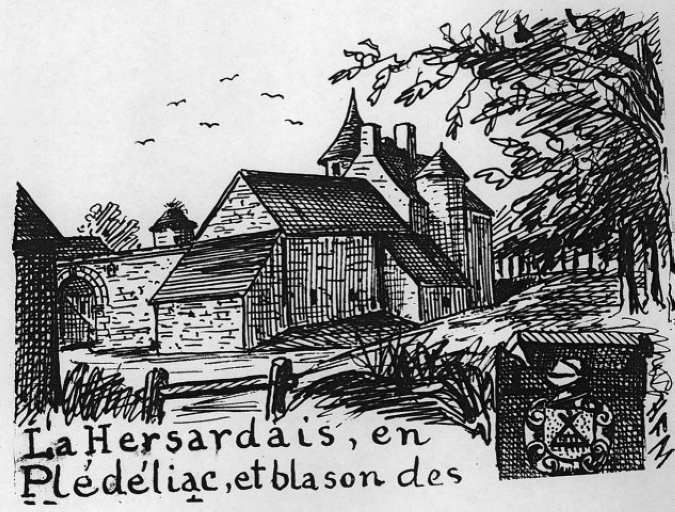 La Hersardais, en
Plédéliac, et blason des